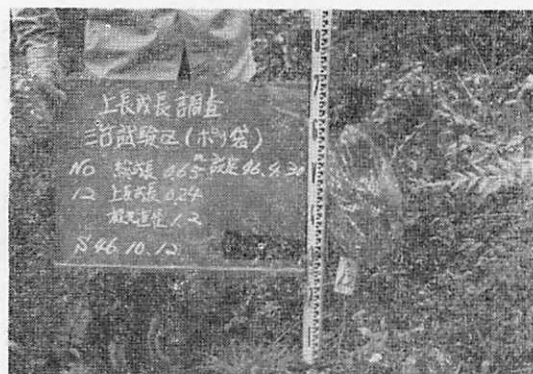 上長成長調査
試験区(ポリ袋)
NO 総成長 0.65 m 設定 46.4.30
12 上長成長 0.24
根元直径 1.2
S 46.10.12